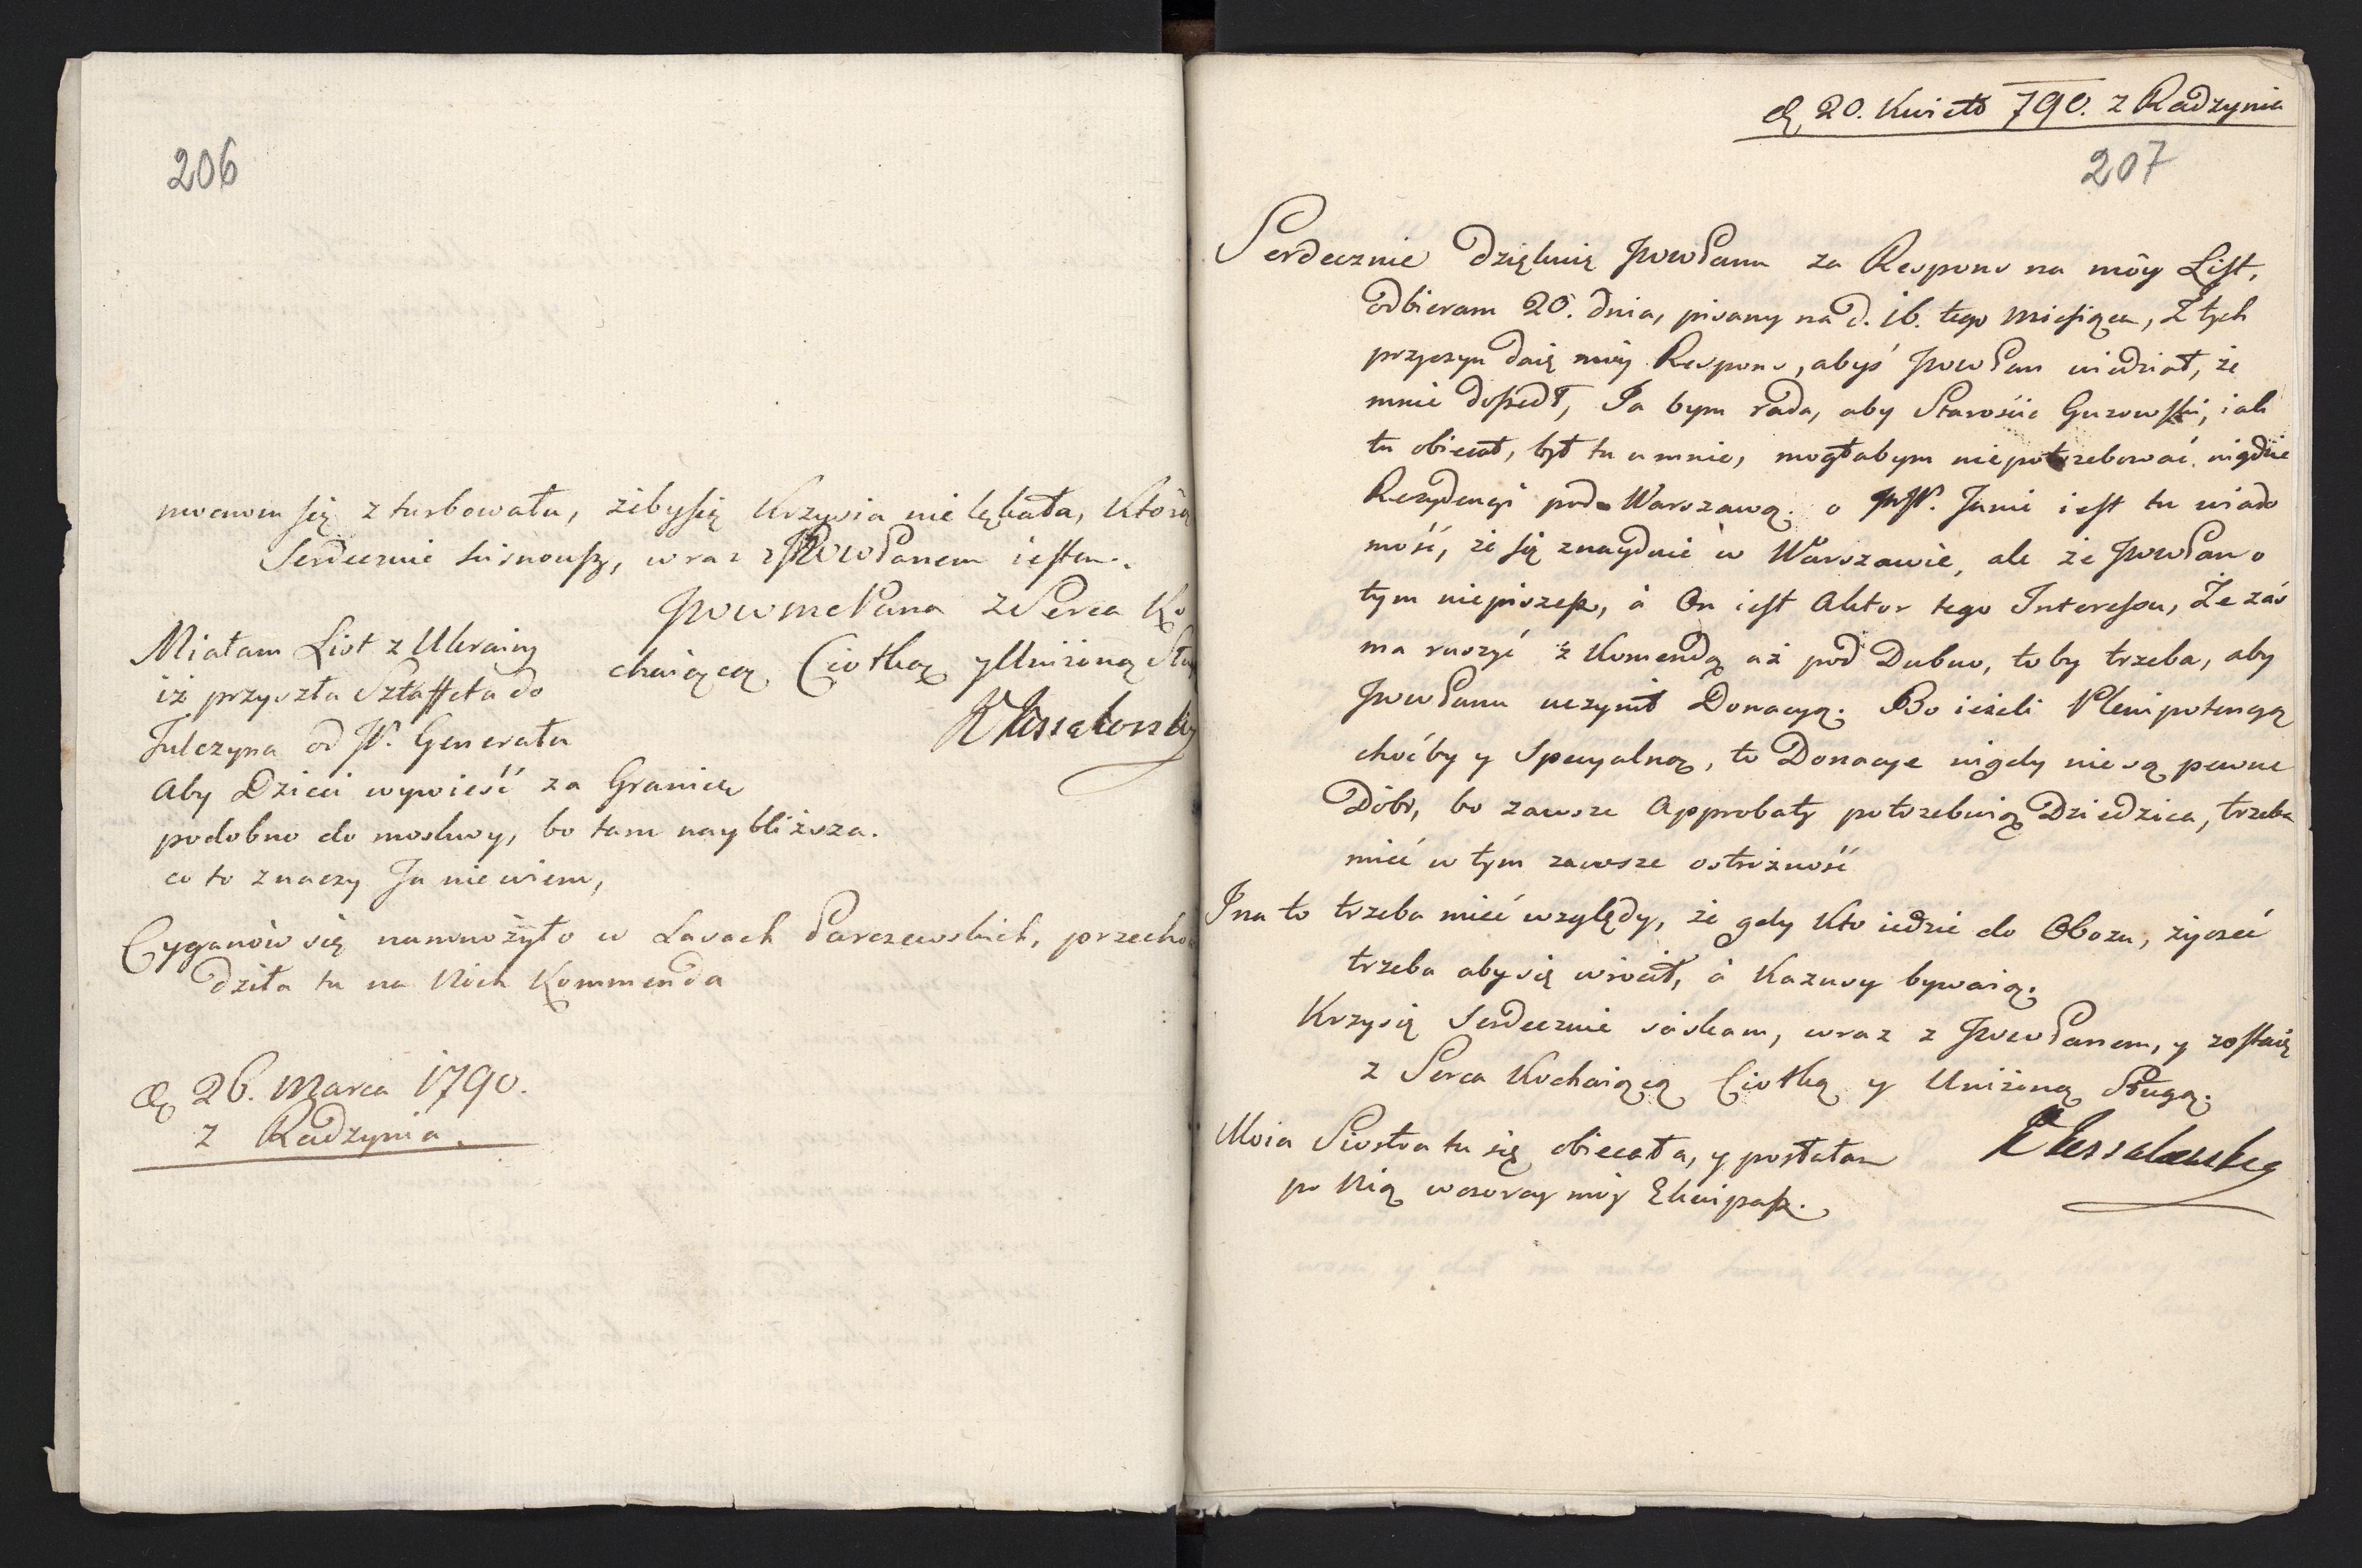 206
mocnom się zturbowała, żeby się Krzysia nie lękała, Którą
Serdecznie ścisnouszy, wraz z JWWPanem iestem.
JWWmcPana z Serca Ko
chaiącą Ciotką y Uniżoną Słu
Miałam List z Ukrainy
iż przyszła Sztaffeta do
Tulczyna od JP. Generała
Aby Dzieci wywieść za Granice
podobno do moskwy, bo tam naybliższa.
co to znaczy Ja nie wiem,
Cyganów się namnożyło w Lasach Parczewskich, przecho
dziła tu na Nich Kommenda
d. 26. Marca 1790.
z Radzynia.
d. 20. Kwiet 790. z Radzynia
207
Serdecznie Dziękuię JWWPanu za Respons na móy List,
odbieram 20. dnia, pisany na d. 16. tego Miesiąca, Z tych
przyczyn daię móy Respons, abyś JWWPan wiedział, że
mnie doszedł, Ja bym rada, aby Starościc Guzowski, iak
tu obiecał, był tu u mnie, mogłabym niepotrzebować nigdzie
Rezydencyi pod Warszawą. o JP. Janie iest tu wiado
mość, że się znayduie w Warszawie, ale że JWWPan o
tym niepiszesz, à On iest Aktor tego Interessu, Że zaś
ma ruszyć z Komendą aż pod Dubno, to by trzeba, aby
JWWPanu uczynił Donacyą. Bo ieżeli Plenipotencyą
choćby y Specyalną, to Donacye nigdy nie są pewne
Dóbr, bo zawsze Approbaty potrzebuią Dziedzica, trzeba
mieć w tym zawsze ostrożność
I na to trzeba mieć względy, że gdy Kto iedzie do Obozu, życzeć
trzeba aby się wrócił, à Kazusy bywaią.
Krzysię Serdecznie ściskam, wraz z JWWPanem, y zostaię
z Serca Kochaiącą Ciotką y Uniżoną Sługą.
Moia Siostra tu się obiecała, y posłałam
po Nią wczoray móy Ekwipasz.